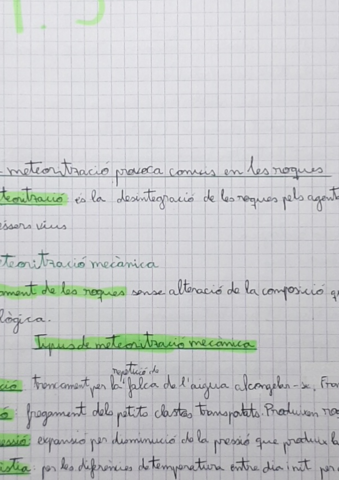 meteorització provoca canvis en les roques
teorització és la desintegració de les roques pels agent
éssers vius
teorització mecànica
ament de les roques sense alteració de la composició q
lògica.
Tipus de meteorització mecànica
repetició de
ció trencament per la falca de l'aigua al congelar-se, Fra
ó: fregament dels petits clastes transpotats. Produeixen ro
essió expansió per disminució de la pressió que produeix la
àstia: per les diferències de temperatura entre dia i nit per